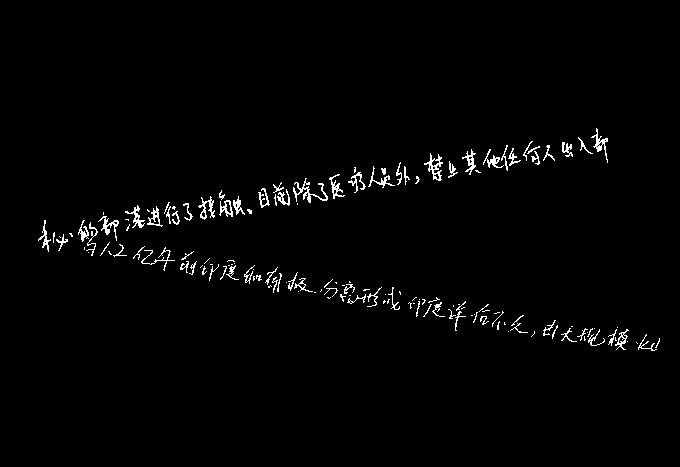 秘的部落进行了接触。目前除了医疗人员外，禁止其他任何人出入部
与1.2亿年前印度和南极分离形成印度洋后不久，由大规模